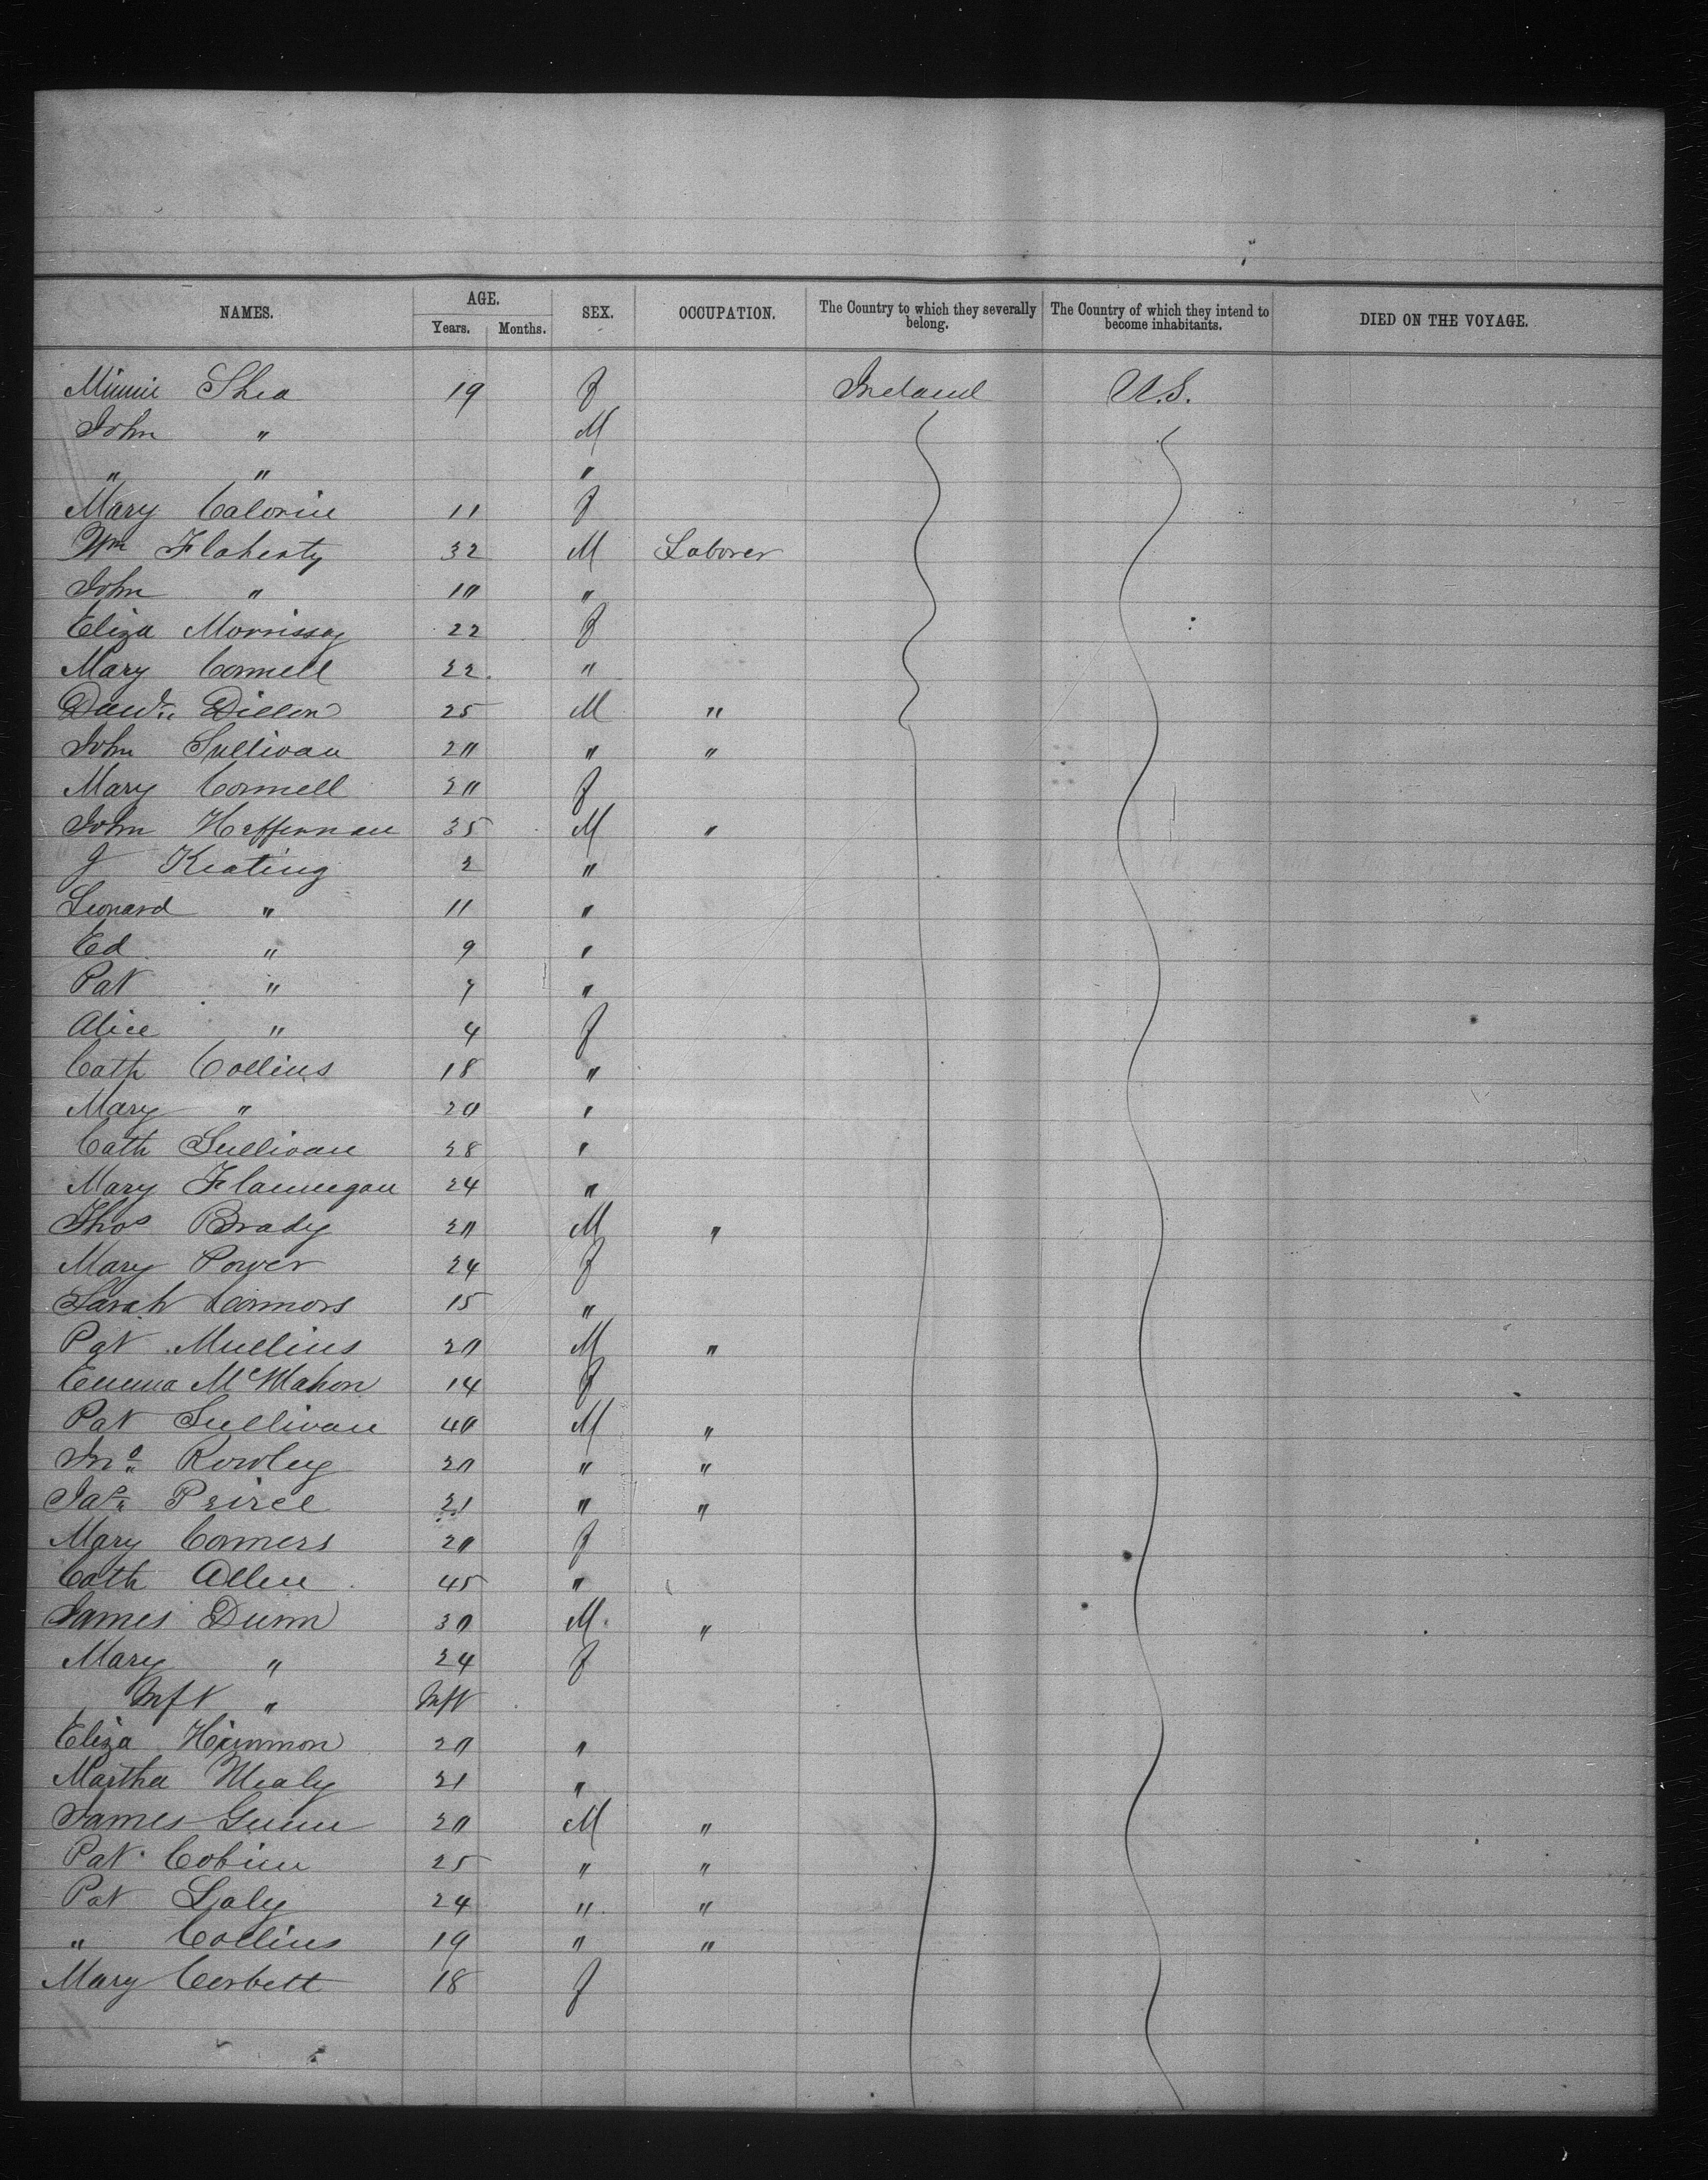 NAMES. AGE. SEX. OCCUPATION. The Country to which they severally belong. The Country of which they intend to become inhabitants. DIED ON THE VOYAGE.
Years. Months.
Minnie Shea 19 f Ireland U.S.
John " M
" " "
Mary 11 f
Wm Flaherty 32 M Laborer
John " 10 "
Eliza Morrissey 22 f
Mary Connell 22 "
Dillon 25 M "
John Sullivan 20 " "
Mary Connell 20 f
John Heffernan 35 M "
J Keating 2 "
Leonard " 11 "
Ed " 9 "
Pat " 7 "
Alice " 4 f
Cath Collins 18 "
Mary " 20 "
Cath Sullivan 28 "
Mary Flannegan 24 "
Thos Brady 20 M "
Mary Power 24 f
Sarah Connors 15 "
Pat Mullins 20 M "
Emma McMahon 14 f
Pat Sullivan 40 M "
Jno Rowley 20 " "
Jas Peirce 21 " "
Mary Conners 20 f
Cath Allen 45 "
James Dunn 30 M "
Mary " 24 f
Inft " Inft
Eliza 20 "
Martha Mealy 21 "
James 20 M "
Pat 25 " "
Pat Laly 24 " "
" Collins 19 " "
Mary Corbett 18 f